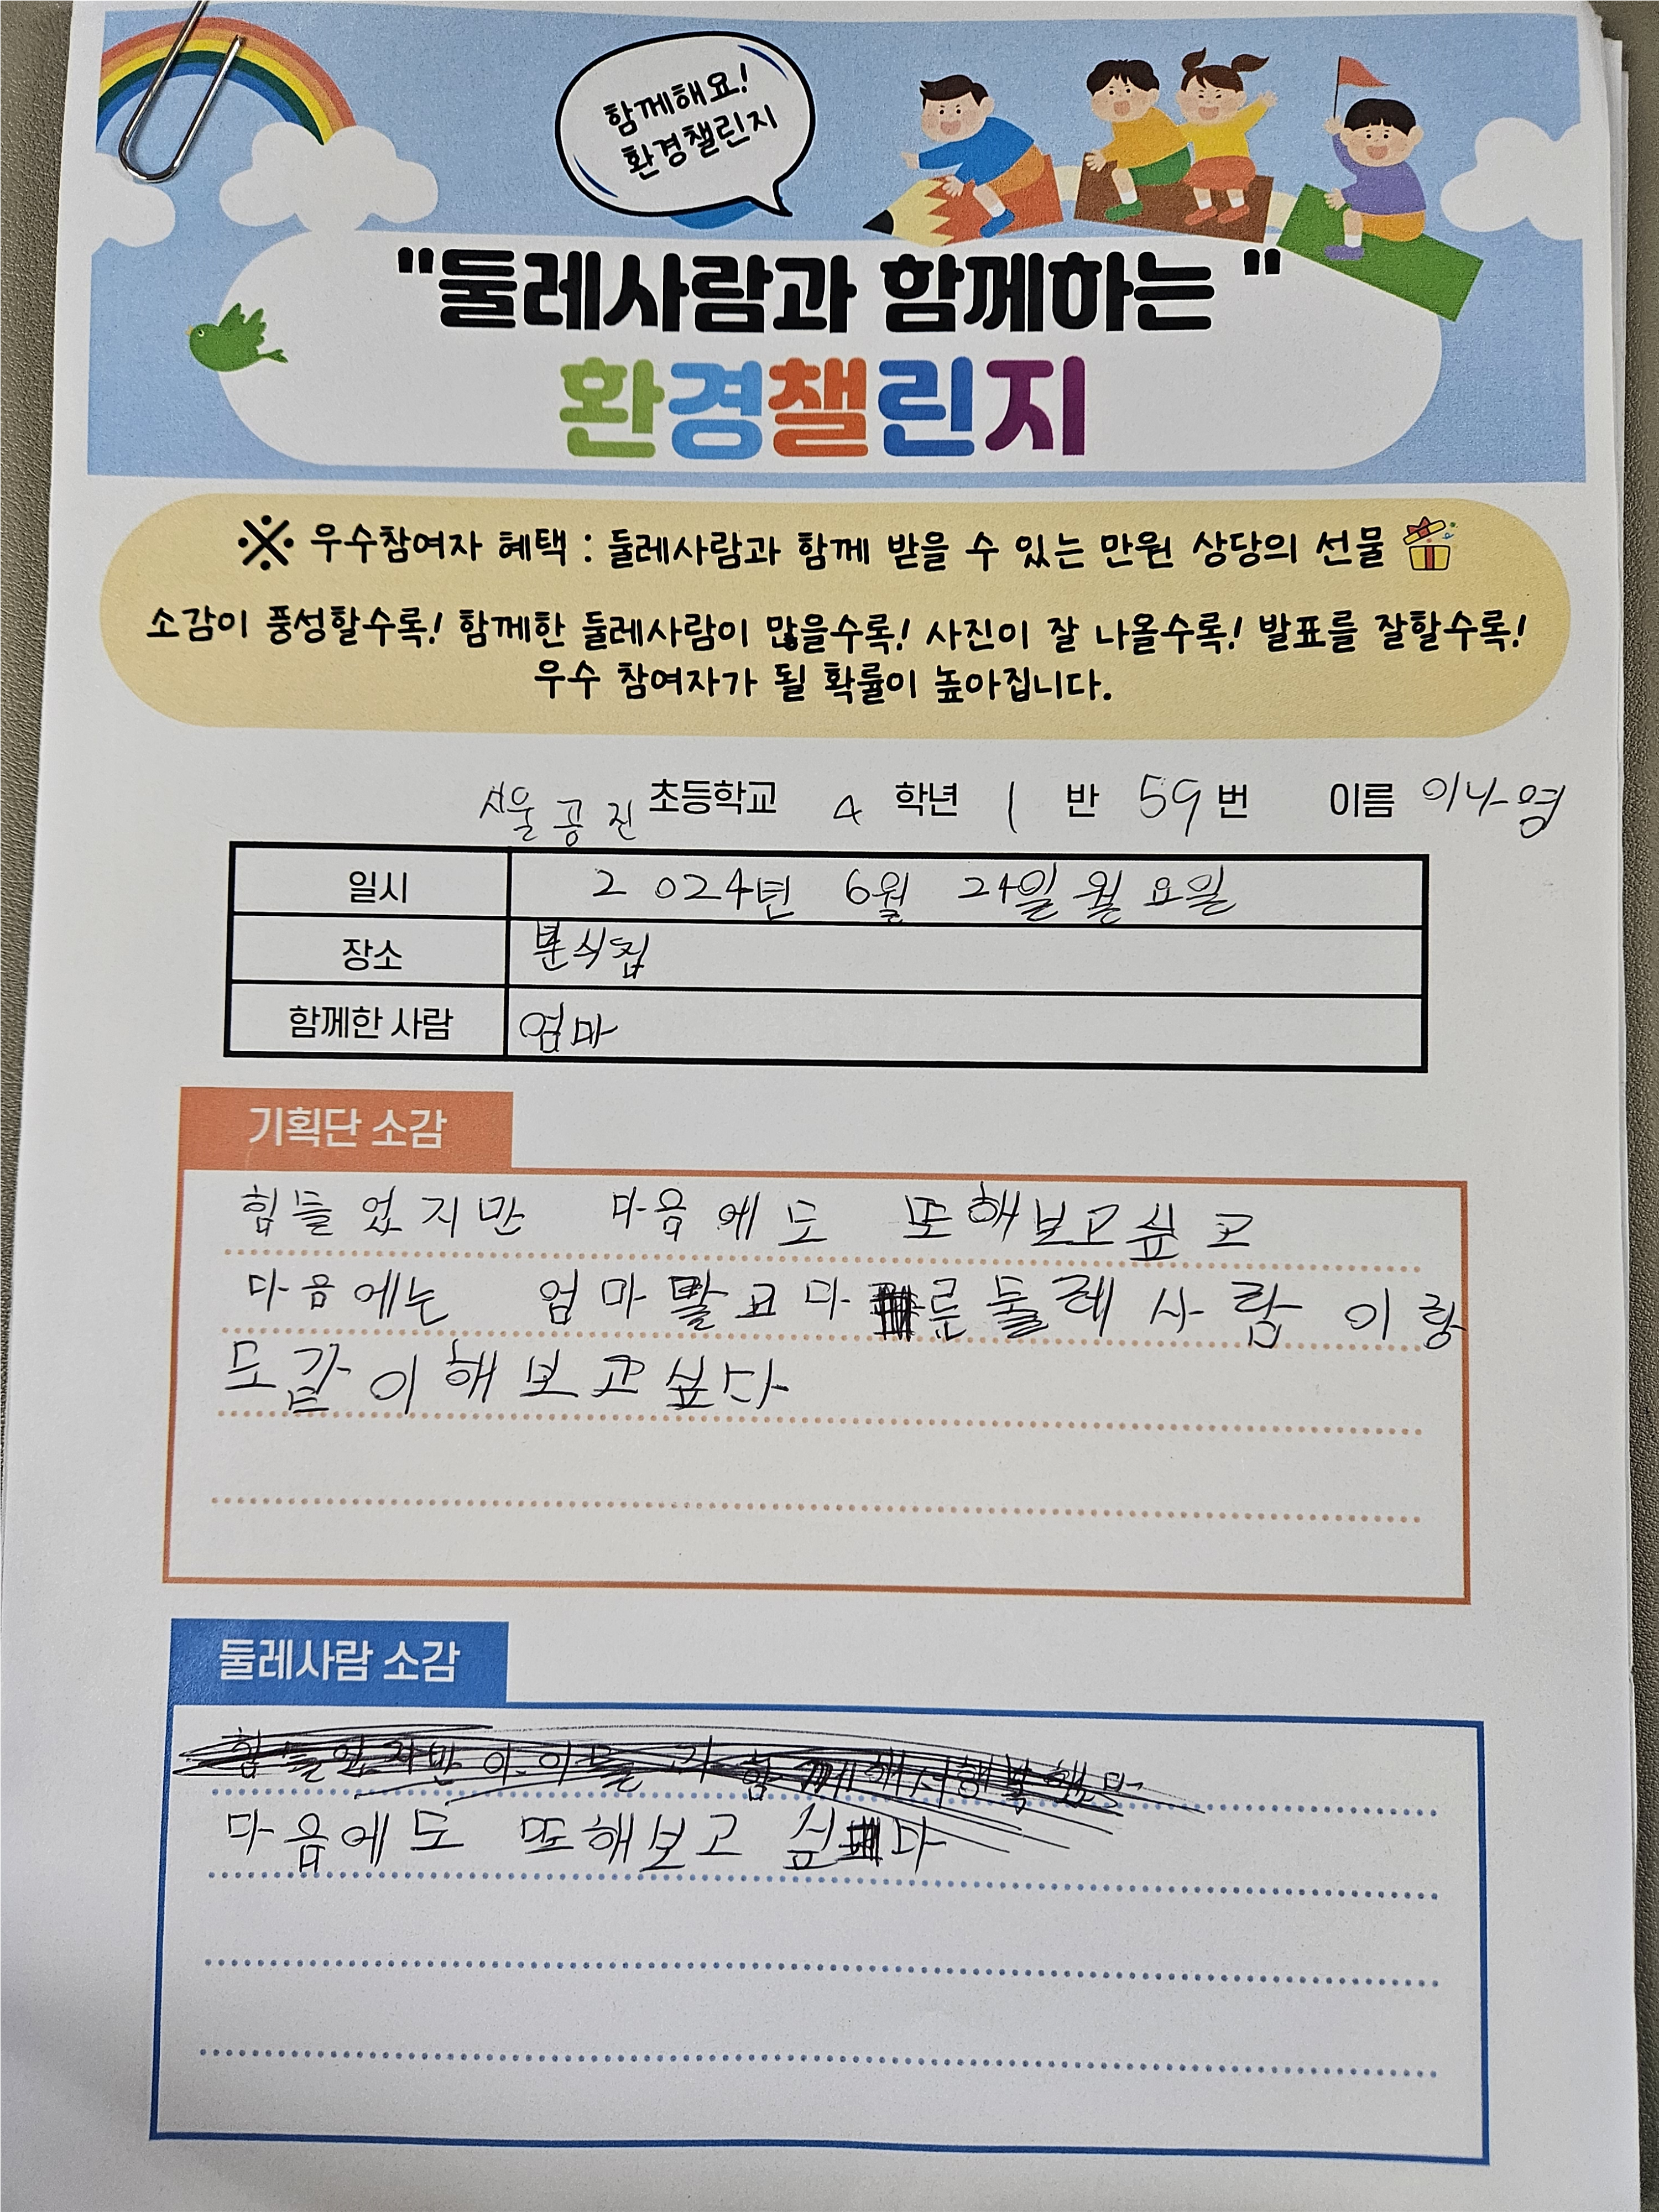 함께해요!
환경챌린지
"둘레사람과 함께하는 "
환경챌린지
※ 우수참여자 혜택 : 둘레사람과 함께 받을 수 있는 만원 상당의 선물
소감이 풍성할수록! 함께한 둘레사람이 많을수록! 사진이 잘 나올수록! 발표를 잘할수록!
우수 참여자가 될 확률이 높아집니다.
서울공진 초등학교 4 학년 1 반 59 번 이름 이나영
일시 2024년 6월 24일 월요일
장소 분식집
함께한 사람 엄마
기획단 소감
힘들었지만 다음에도 또해보고싶고
다음에는 엄마말고다른둘레사람이랑
도같이해보고싶다
둘레사람 소감
힘들었지만 아이들과 함께해서행복했다
다음에도 또해보고 싶다